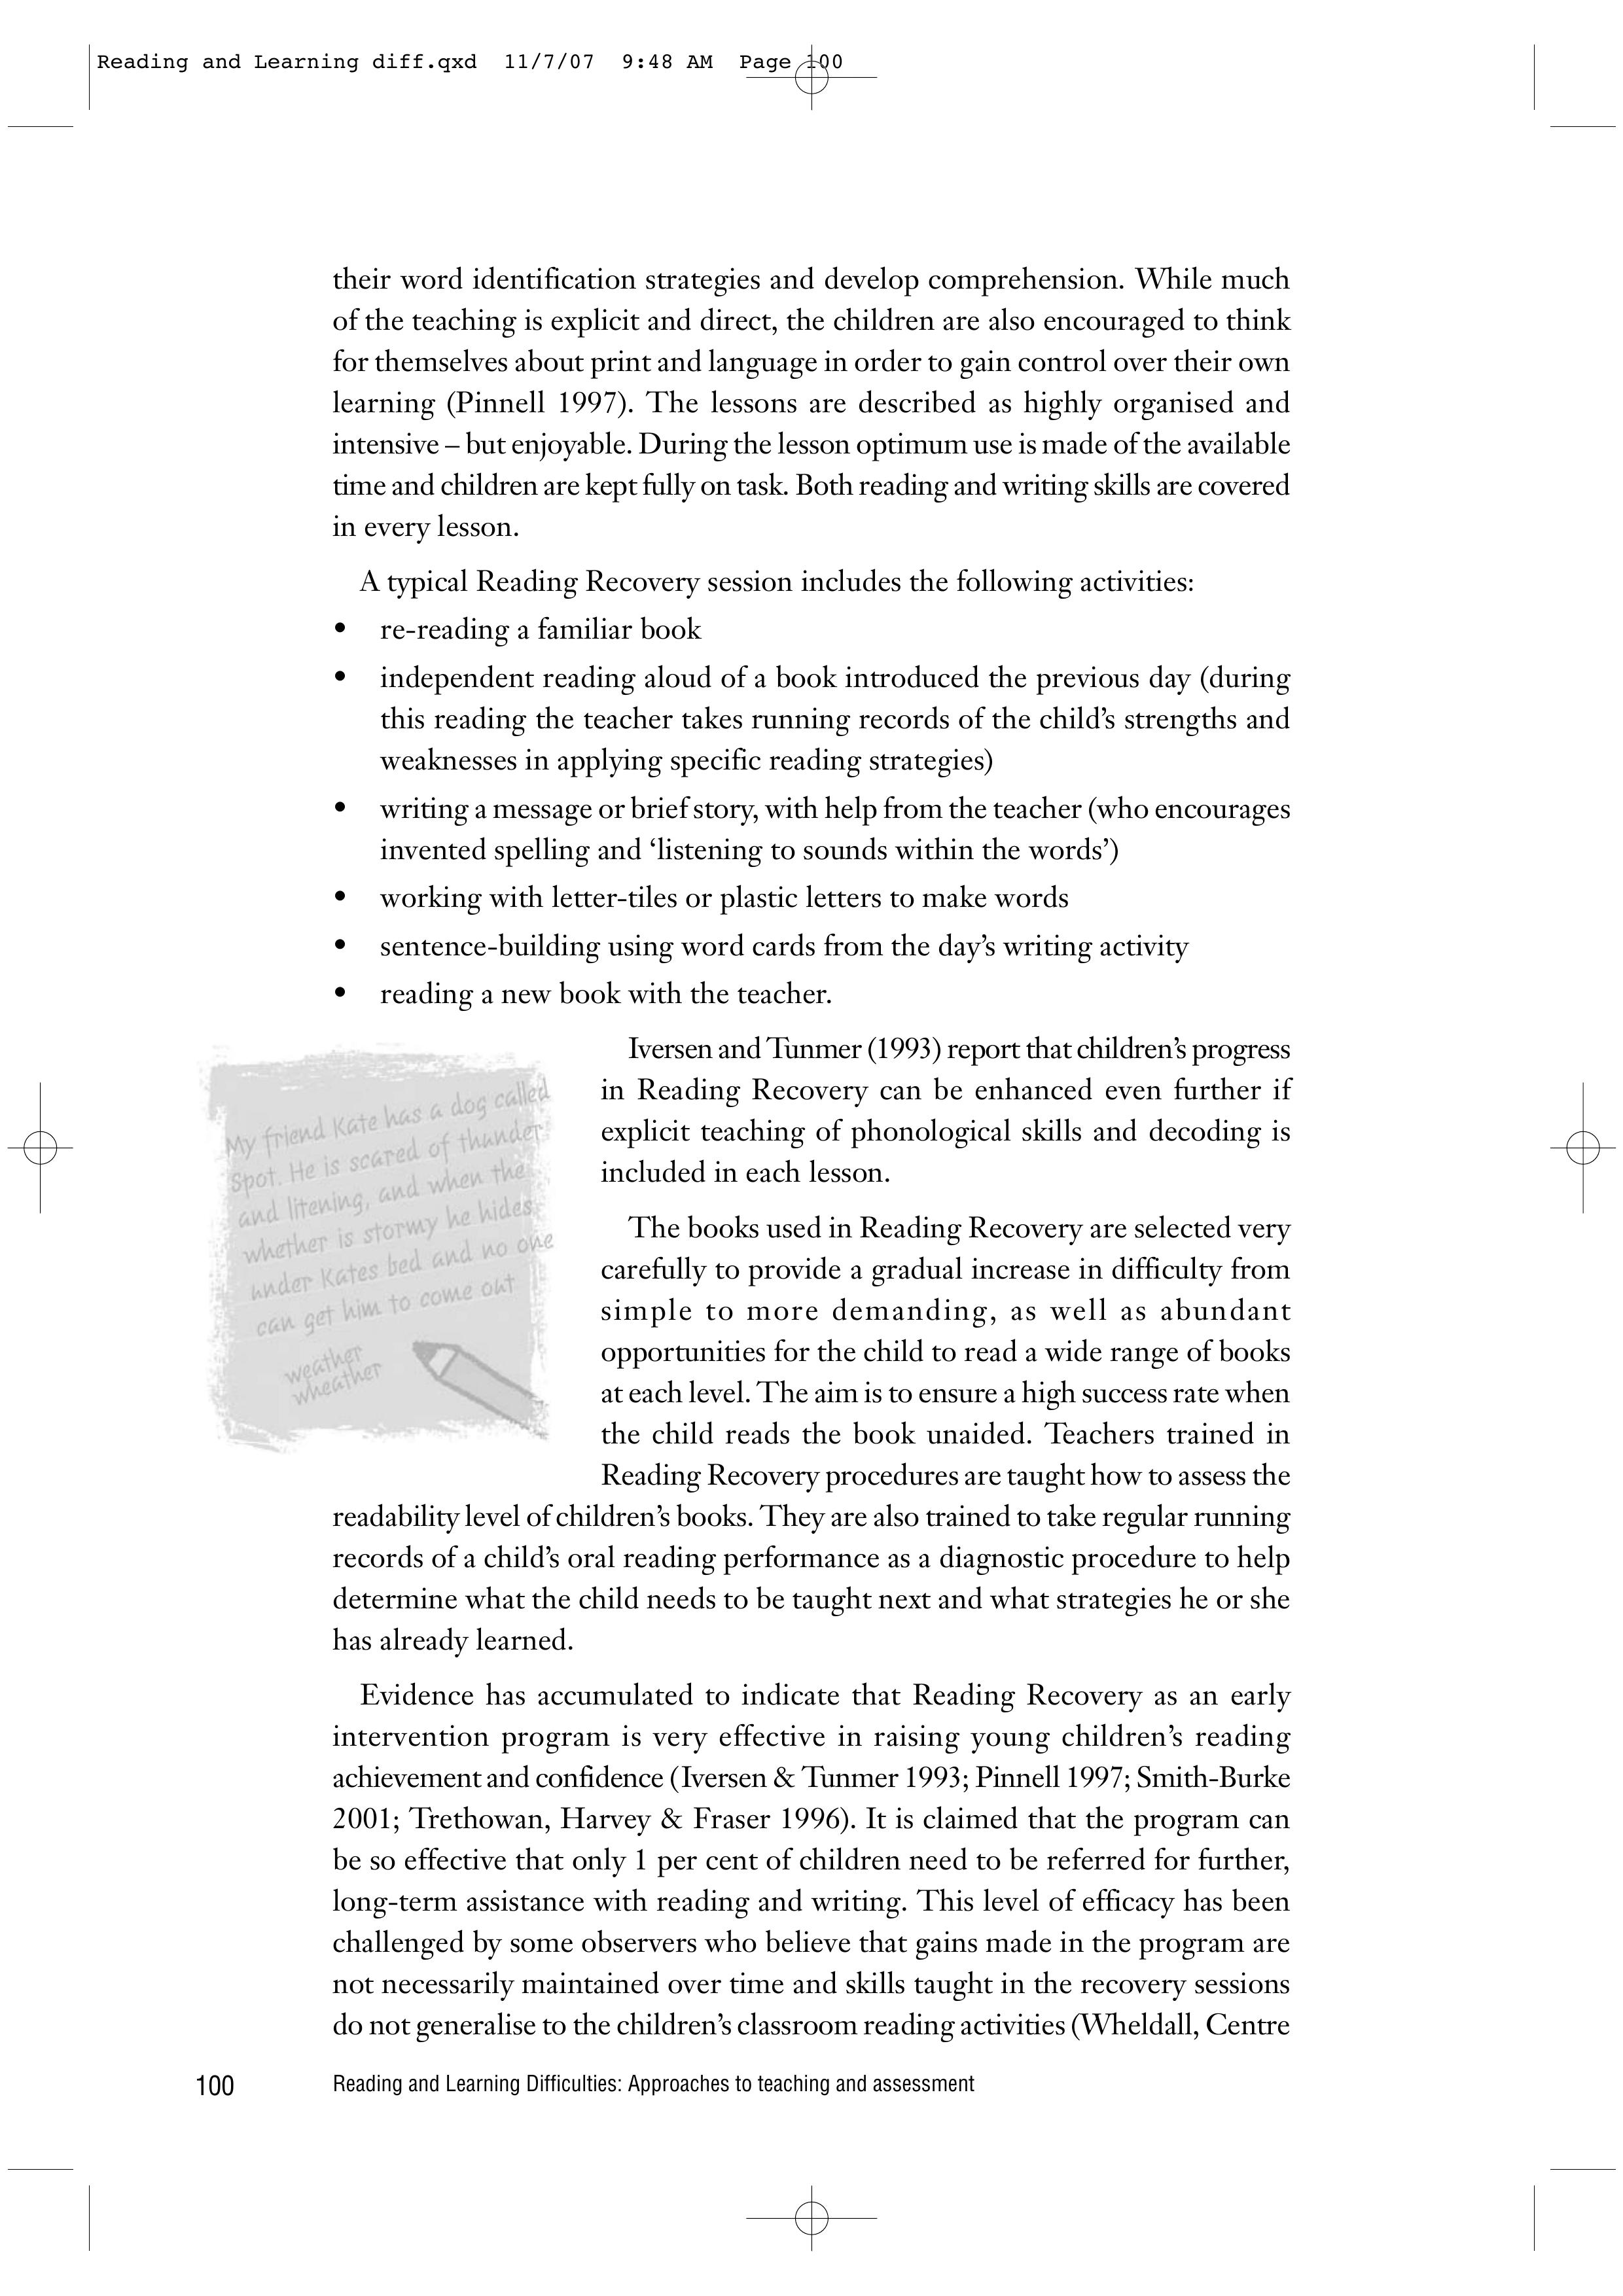 Reading and Learning diff.qxd  11/7/07  9:48 AM  Page 100
their word identification strategies and develop comprehension. While much
of the teaching is explicit and direct, the children are also encouraged to think
for themselves about print and language in order to gain control over their own
learning (Pinnell 1997). The lessons are described as highly organised and
intensive – but enjoyable. During the lesson optimum use is made of the available
time and children are kept fully on task. Both reading and writing skills are covered
in every lesson.
A typical Reading Recovery session includes the following activities:
• re-reading a familiar book
• independent reading aloud of a book introduced the previous day (during
this reading the teacher takes running records of the child’s strengths and
weaknesses in applying specific reading strategies)
• writing a message or brief story, with help from the teacher (who encourages
invented spelling and ‘listening to sounds within the words’)
• working with letter-tiles or plastic letters to make words
• sentence-building using word cards from the day’s writing activity
• reading a new book with the teacher.
My friend Kate has a dog called
Spot. He is scared of thunder
and litening, and when the
whether is stormy he hides
under Kates bed and no one
can get him to come out
weather
wheather
Iversen and Tunmer (1993) report that children’s progress
in Reading Recovery can be enhanced even further if
explicit teaching of phonological skills and decoding is
included in each lesson.
The books used in Reading Recovery are selected very
carefully to provide a gradual increase in difficulty from
simple to more demanding, as well as abundant
opportunities for the child to read a wide range of books
at each level. The aim is to ensure a high success rate when
the child reads the book unaided. Teachers trained in
Reading Recovery procedures are taught how to assess the
readability level of children’s books. They are also trained to take regular running
records of a child’s oral reading performance as a diagnostic procedure to help
determine what the child needs to be taught next and what strategies he or she
has already learned.
Evidence has accumulated to indicate that Reading Recovery as an early
intervention program is very effective in raising young children’s reading
achievement and confidence (Iversen & Tunmer 1993; Pinnell 1997; Smith-Burke
2001; Trethowan, Harvey & Fraser 1996). It is claimed that the program can
be so effective that only 1 per cent of children need to be referred for further,
long-term assistance with reading and writing. This level of efficacy has been
challenged by some observers who believe that gains made in the program are
not necessarily maintained over time and skills taught in the recovery sessions
do not generalise to the children’s classroom reading activities (Wheldall, Centre
100 Reading and Learning Difficulties: Approaches to teaching and assessment